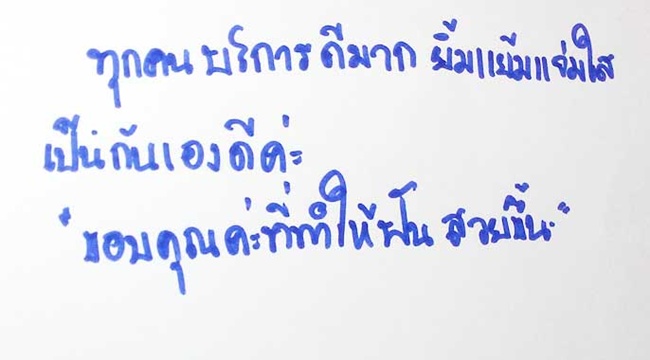 ทุกคนบริการดีมาก ยิ้มแย้มแจ่มใส
เป็นกันเองดีค่ะ
"ขอบคุณค่ะที่ทำให้ฟันสวยขึ้น"